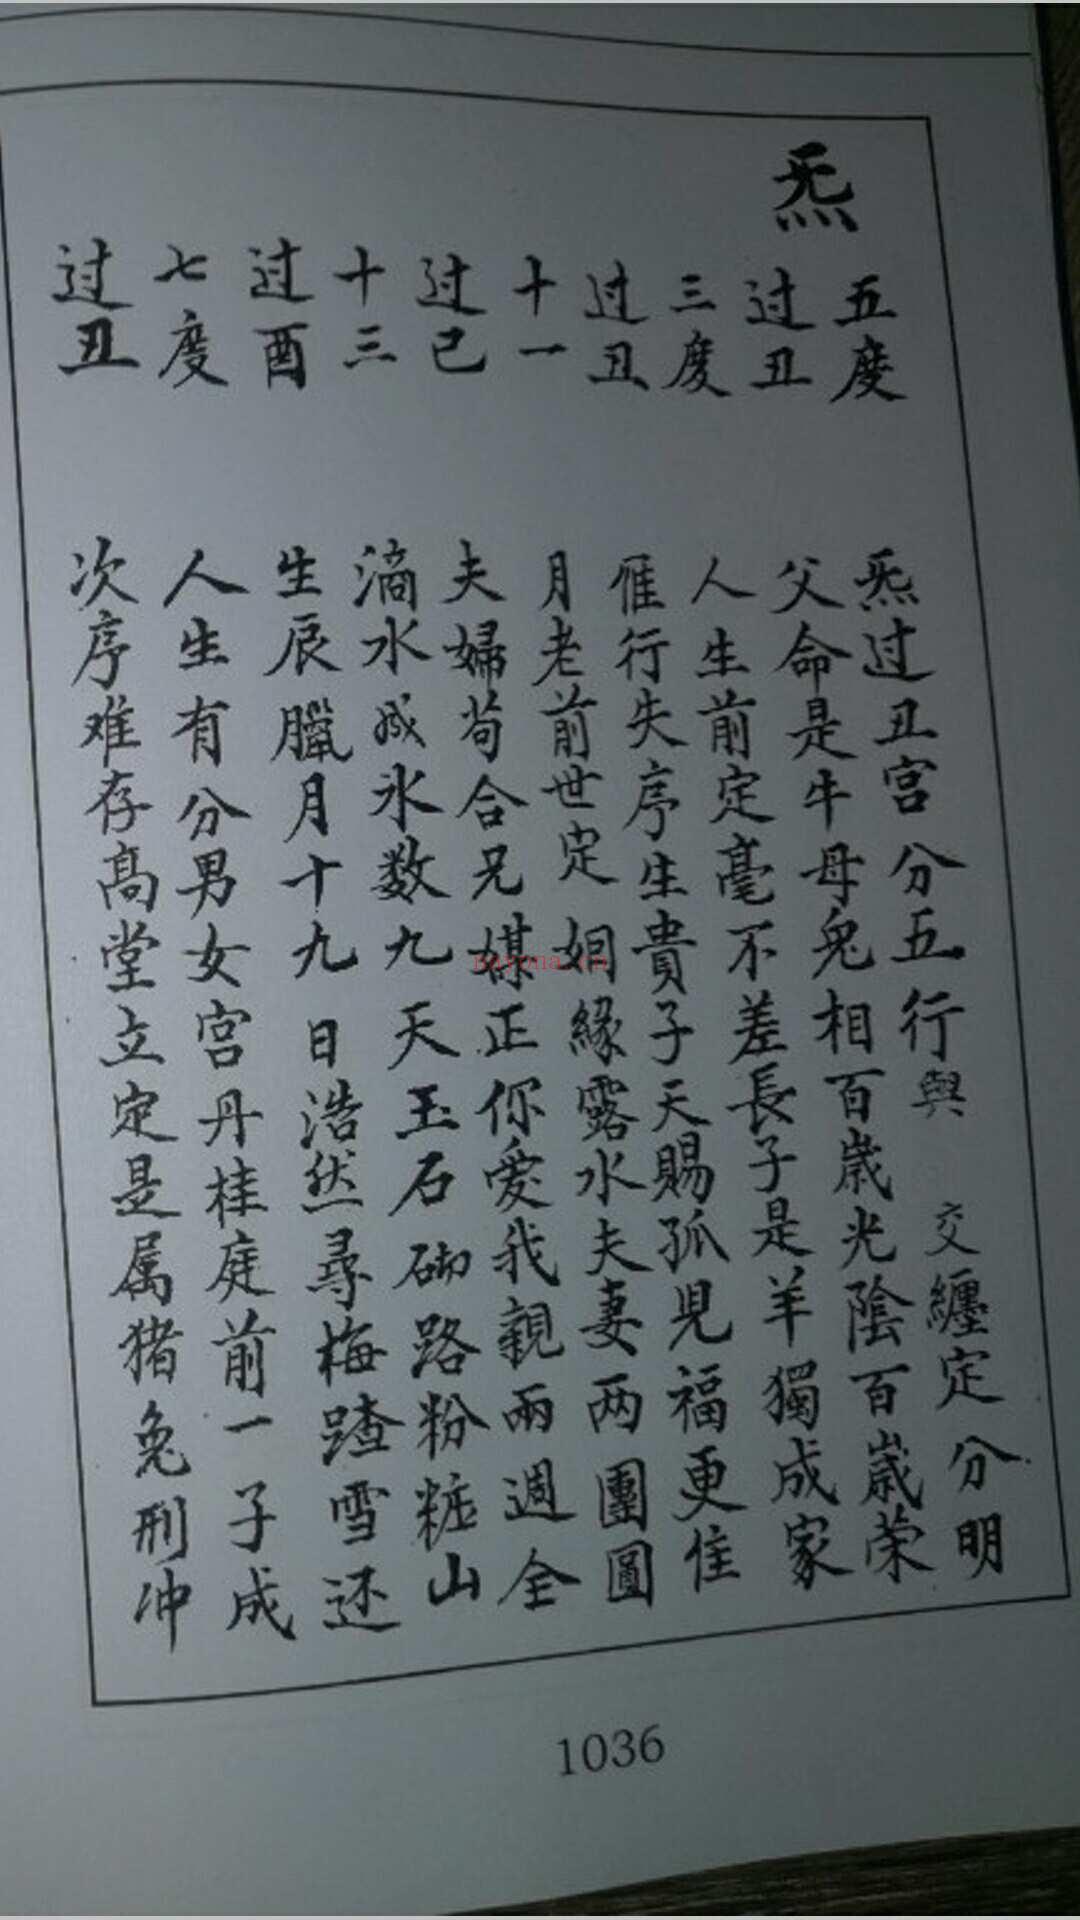 炁
五度 炁过丑宫分五行與 交纏定分明
过丑 父命是牛母兔相百歲光陰百歲荣
三度 人生前定毫不差長子是羊獨成家
过丑 雁行失序生貴子天賜孤児福更佳
十一 月老前世定姻緣露水夫妻两團圓
过已 夫婦苟合兄媒正你愛我親兩週全
十三 滴水成氷数九天玉石砌路粉粧山
过酉 生辰臘月十九日浩然尋梅蹅雪还
七度 人生有分男女宫丹桂庭前一子成
过丑 次序难存高堂立定是属猪兔刑冲
1036
nayona.cn